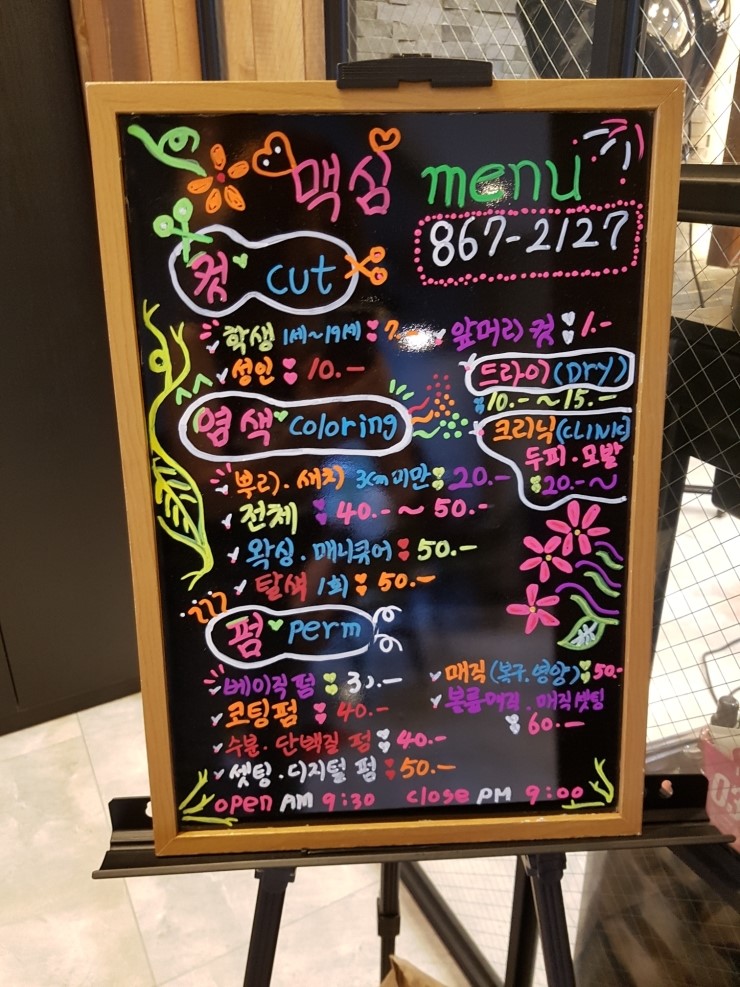 맥심 menu
867-2127
컷 cut
학생 1세~19세 7.-
성인 10.-
앞머리 컷 1.-
드라이(DRY)
10.-~15.-
크리닉(CLINIC)
두피.모발
20.-~
염색 coloring
뿌리.새치 3cm미만 20.-
전체 40.-~50.-
왁싱.매니큐어 50.-
탈색 1회 50.-
펌 perm
베이직펌 30.-
코팅펌 40.-
수분.단백질 펌 40.-
셋팅.디지털 펌 50.-
매직(복구.영양) 50.-
볼륨매직.매직셋팅
60.-
open AM 9:30 close PM 9:00